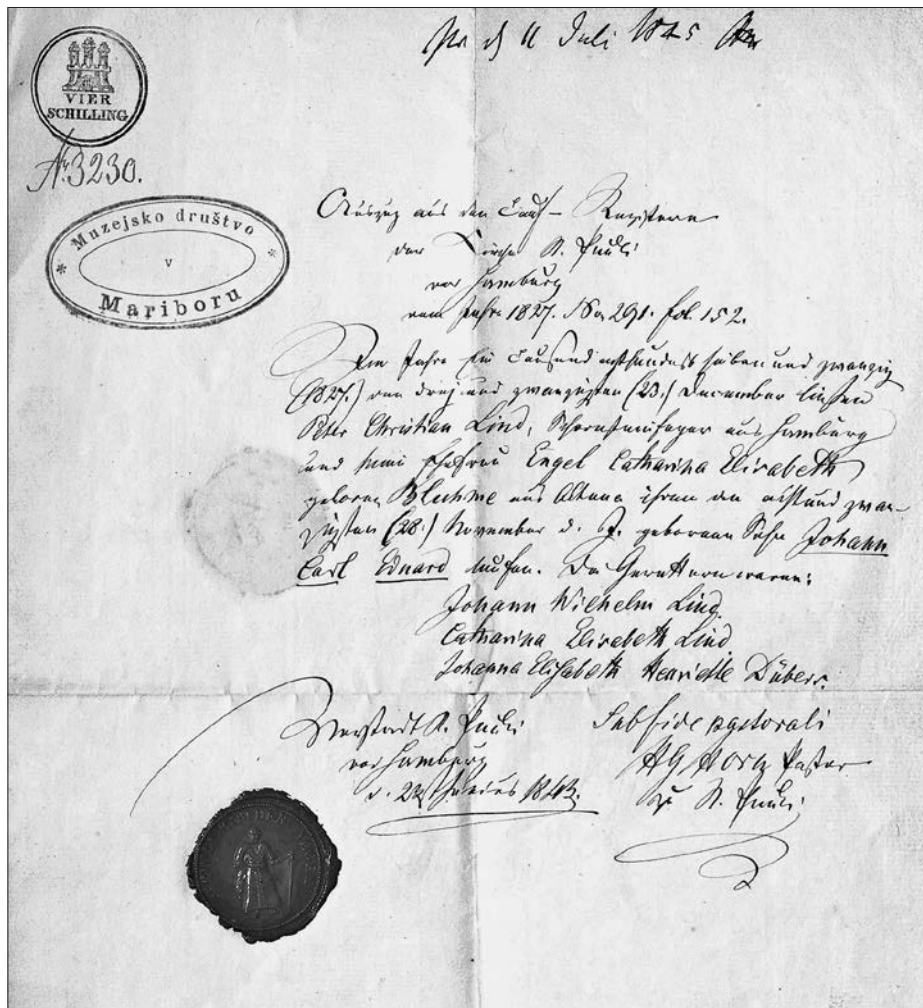 11 Juli 1845
VIER
SCHILLING
№ 3230.
Muzejsko društvo
v
Mariboru
Auszug aus den Tauf-Registern
der Kirche St. Pauli
vor Hamburg
vom Jahre 1827. No 291. fol. 152.
Im Jahre Ein Tausend achthundert sieben und zwanzig
(1827.) den drei und zwanzigsten (23.) December ließen
Peter Christian Lind, Schornsteinfeger aus Hamburg
und seine Ehefrau Engel Catharina Elisabeth
geborne Bluhme aus Altona ihren den acht und zwan-
zigsten (28.) November d. J. gebornen Sohn Johann
Carl Eduard taufen. Die Gevattern waren:
Johann Wilhelm Lind
Catharina Elisabeth Lind
Johanna Elisabeth Henriette Dübers.
Vorstadt St. Pauli
vor Hamburg
d. 1843.
Sub fide pastorali
Pastor
zu St. Pauli